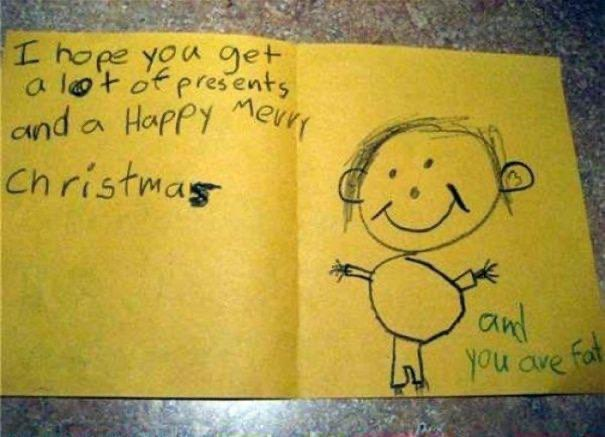 I hope you get
a lot of presents
and a Happy Merry
Christmas
and
you are Fat